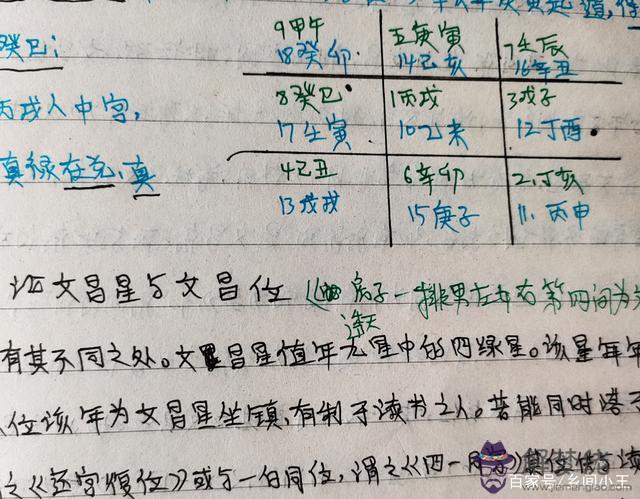 癸巳：
9甲午 五庚寅 7壬辰
18癸卯 14己亥 16辛丑
丙戌人中宫，
8癸巳 1丙戌 3戊子
17壬寅 10乙未 12丁酉
真禄在兑、真
4己丑 6辛卯 2、丁亥
13戊戌 15庚子 11、丙申
论文昌星与文昌位 房子一排男左女右第四间为
有其不同之处。文昌星值年九星中的四绿星。该星年年
位该年为文昌星坐镇,有利于读书之人。若能同时
之《还宫复位》或与一白同位,谓之《四一同宫》
百家号/乡间小王
www.jiemengdao.com